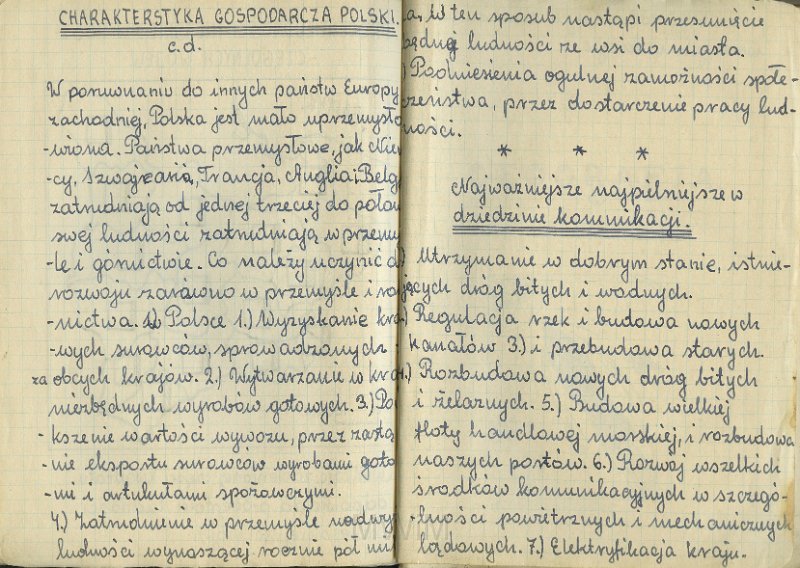 CHARAKTERSTYKA GOSPODARCZA POLSKI.
c.d.
W poruwnaniu do innych państw Europy
zachodniej, Polska jest mało uprzemysło
-wiona. Państwa przemysłowe, jak Niem
-cy, Szwajcaria, Francja, Anglia i Belg
zatrudniają od jednej trzeciej do połow
swej ludności zatrudniają w przemy
-śle i górnictwie. Co należy uczynić d
rozwoju zarówno w przemyśle i ro
-nictwa. W Polsce 1.) Wyzyskanie kra
-wych surowców, sprowadzonych
za obcych krajów. 2.) Wytwarzanie w kra
niezbędnych wyrobów gotowych. 3.) Po
-kszenie wartości wywozu, przez zastą
-nie eksportu surowców wyrobami goto
-mi i artukułami spożawczymi.
4.) Zatrudnienie w przemyśle nadwy
ludności wynoszącej rocznie pół mil
a. W ten sposub nastąpi przesunięcie
będnej ludności ze wsi do miasta.
) Podniesienia ogulnej zamożności społe-
czeństwa, przez dostarczenie pracy lud-
ności.
* * *
Najważniejsze najpilniejsze w
dziedzinie komunikacji.
) Utrzymanie w dobrym stanie, istnie-
jących dróg bitych i wodnych.
.) Regulacja rzek i budowa nowych
kanałów 3.) i przebudowa starych.
.) Rozbudowa nowych dróg bitych
i żelaznych. 5.) Budowa wielkiej
floty handlowej morskiej, i rozbudowa
naszych portów. 6.) Rozwój wszelkich
środków komunikacyjnych w szczegó-
-lności powietrznych i mechanicznych
lądowych. 7.) Elektryfikacja kraju.